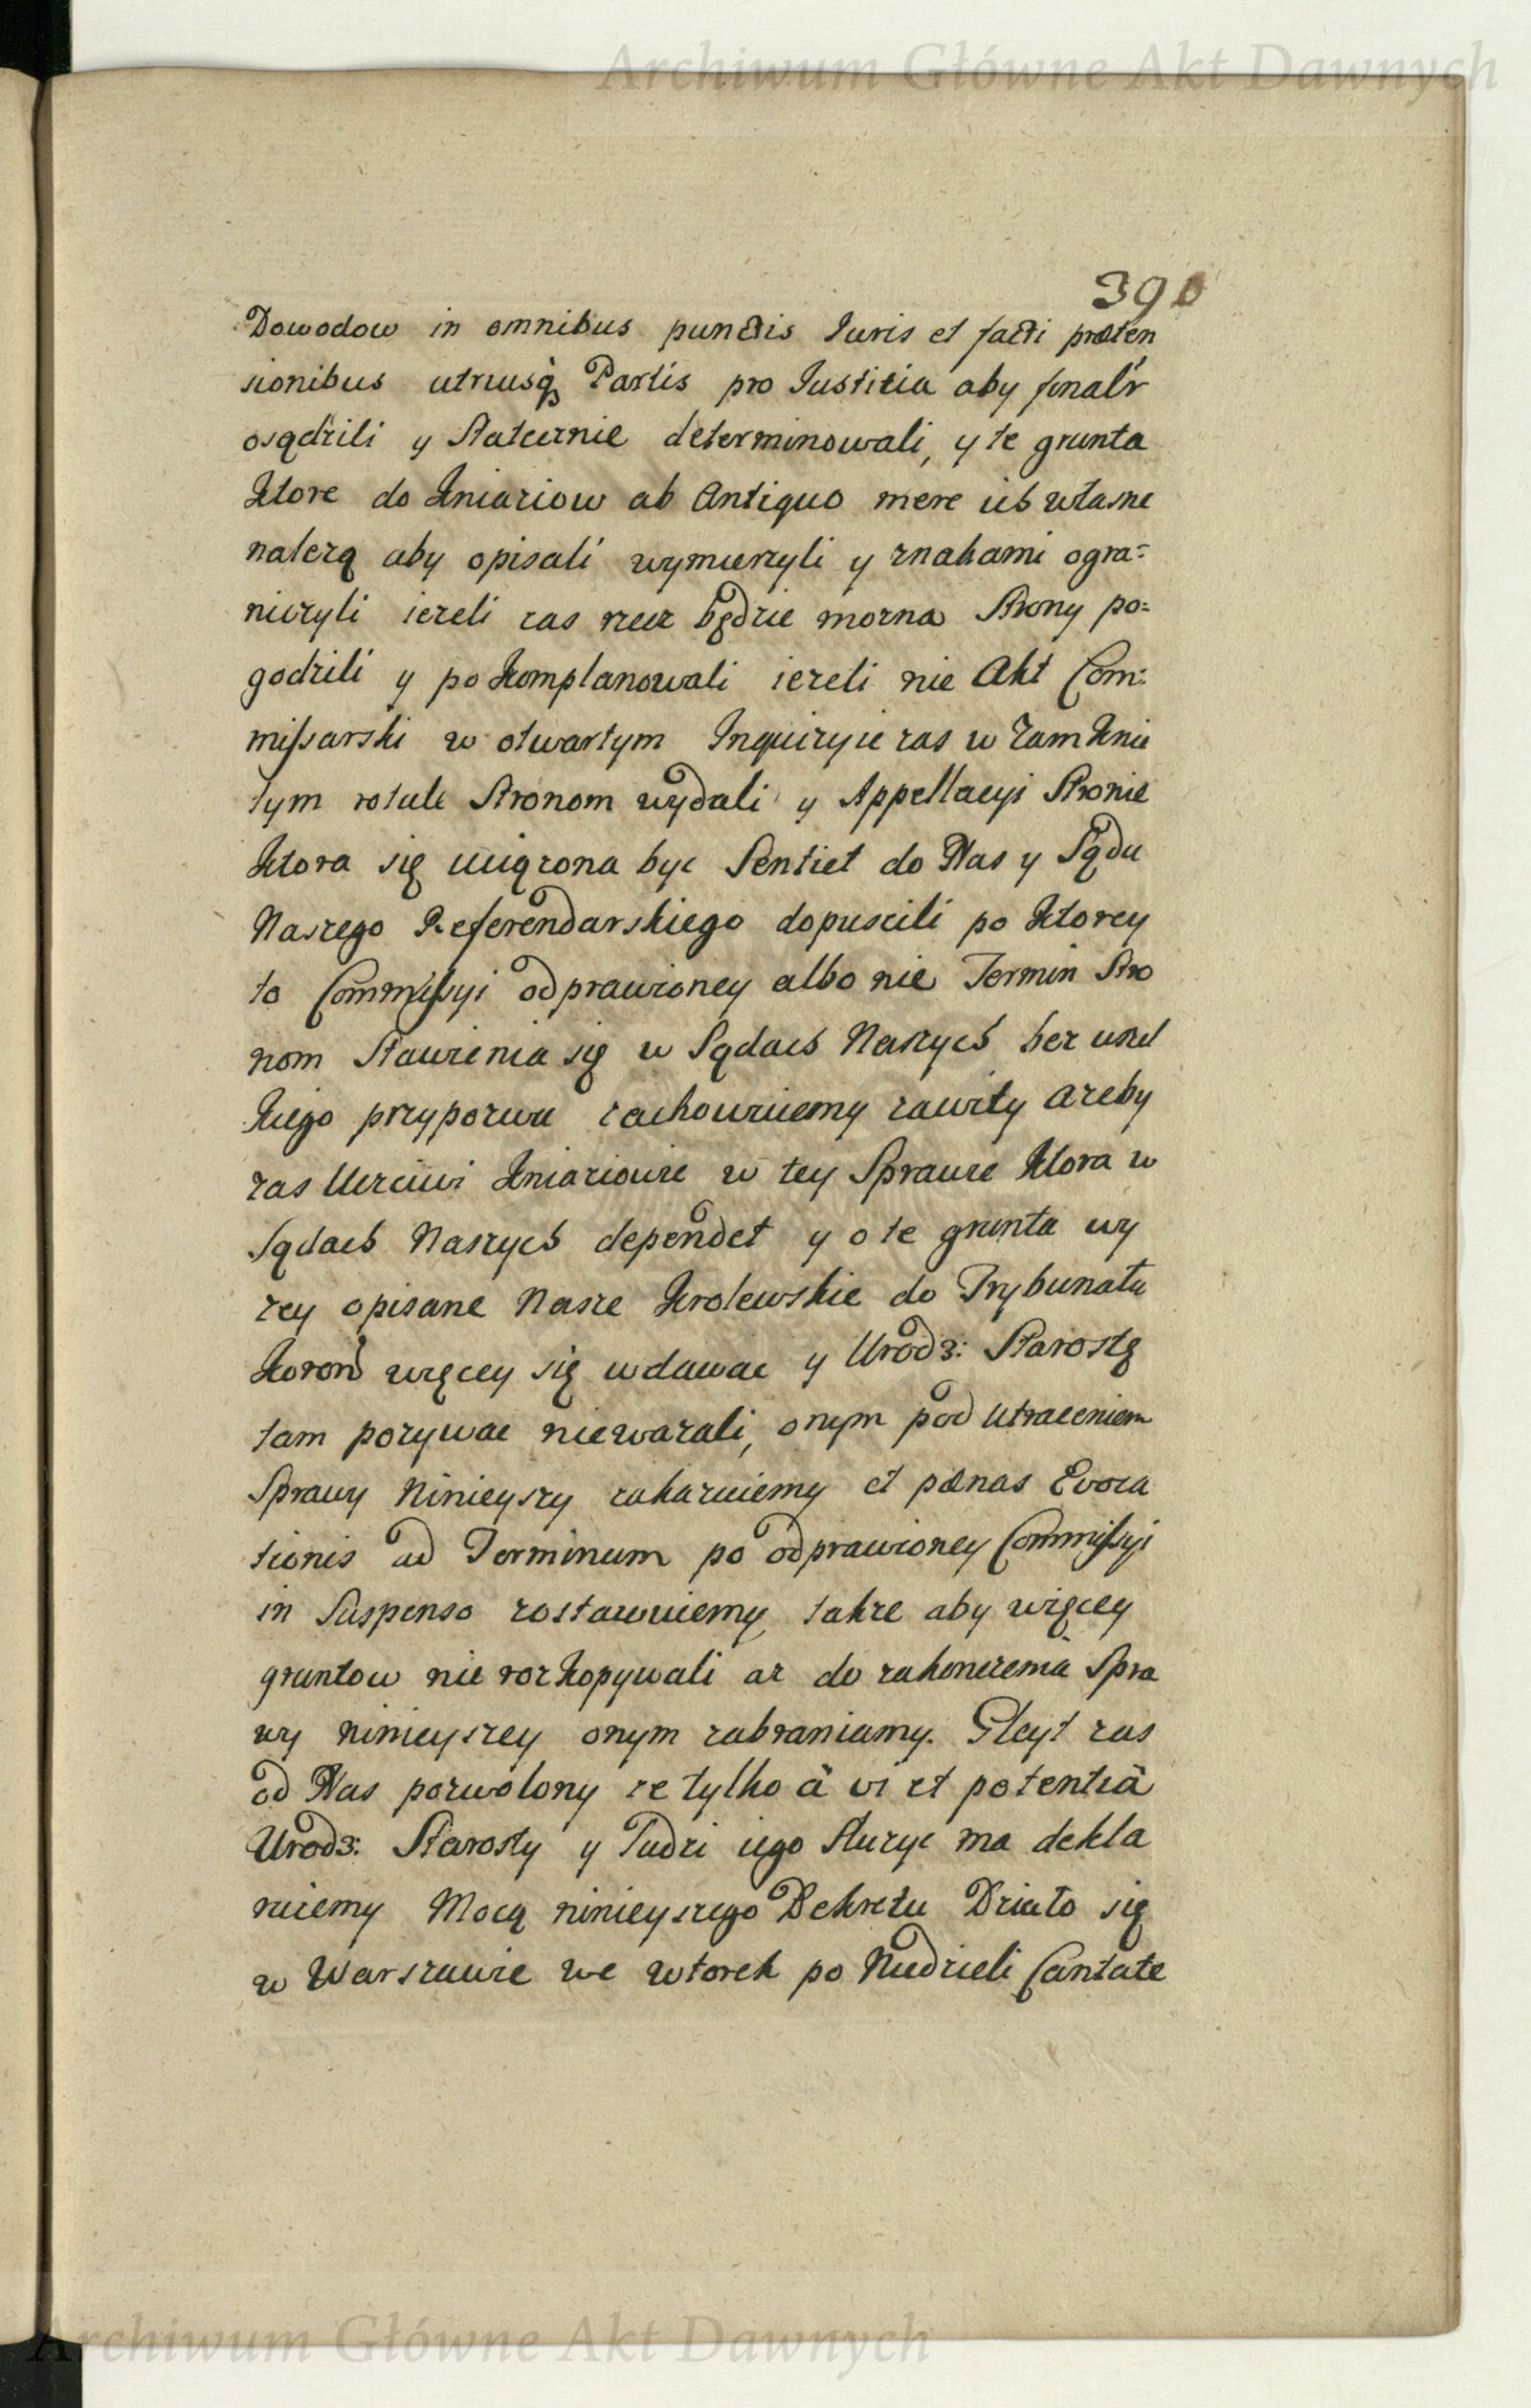 Archiwum Główne Akt Dawnych
390
Dowodow in omnibus punctis Iuris et facti præten
sionibus utriusq; Partis pro Iustitia aby finalr
osądzili y statecznie determinowali, y te grunta
ktore do Kniaziow ab Antiquo mere ich własne
należą aby opisali wymierzyli y znakami ogra=
niczyli ieżeli zas rzecz będzie można Strony po=
godzili y po komplanowali ieżeli nie Akt Com:
missarski w otwartym Inquizycie zas w zamknię
tym rotule Stronom wydali y Appellacyi Stronie
ktora się uciązona byc Sentiet do Nas y Sądu
Naszego Referendarskiego dopuscili po ktorey
to Commissyi odprawioney albo nie Termin Stro
nom stawienia się w Sądach Naszych bez wszel
kiego przypozwu zachowuiemy zawity ażeby
zas Uczciwi Kniaziowie w tey Sprawie ktora w
Sądach Naszych dependet y o te grunta wy
zey opisane Nasze Krolewskie do Trybunału
Koron więcey się wdawac y Urodz: Starostę
tam pozywac nieważali, onym pod utraceniem
Sprawy Ninieyszy zakazuiemy et pænas Evoca
tionis ad Terminum po odprawioney Commissyi
in Suspenso zostawuiemy także aby więcey
gruntow nie rozkopywali aż do zakonczenia Spra
wy ninieyszey onym zabraniamy. Gleyt zas
od Nas pozwolony że tylko à vi et potentiâ
Urodz: Starosty y Ludzi iego służyc ma dekla
ruiemy Mocą ninieyszego Dekretu Działo się
w Warszawie we wtorek po Niedzieli Cantate
Archiwum Główne Akt Dawnych